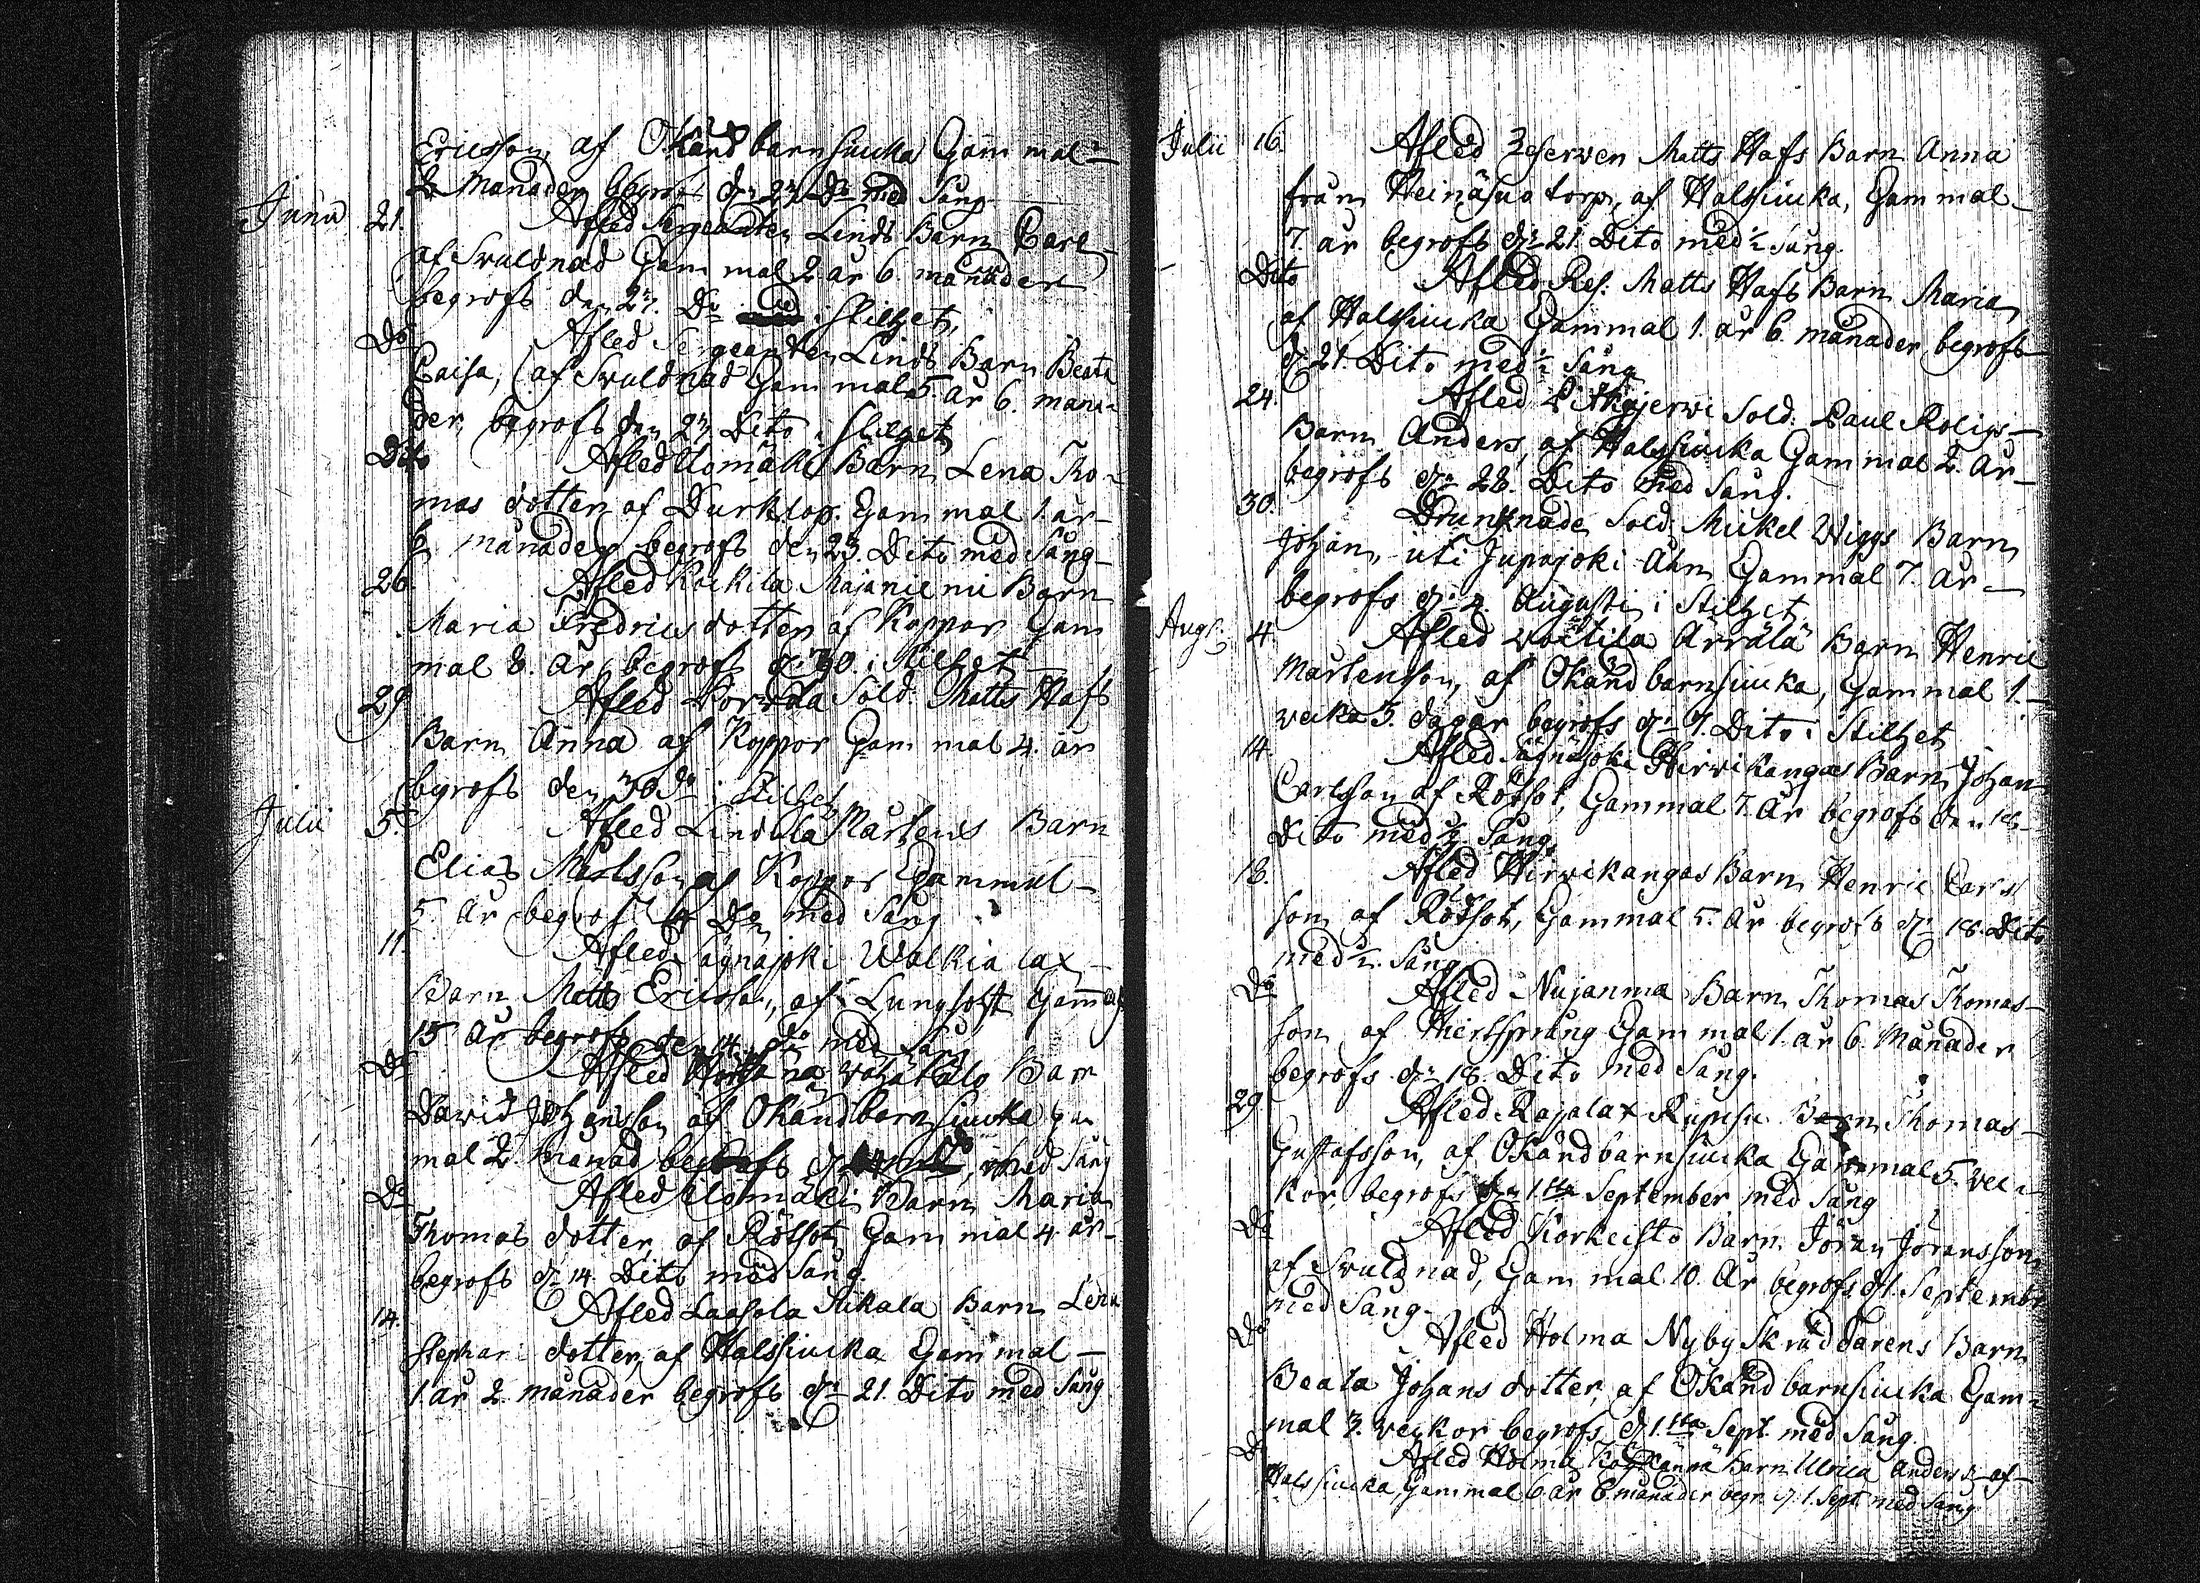 Ericsson, af Okänd barnsiucka Gammal
2 Månader begrofs d. 27 Do med Sång
Junii 21. Afled Sergeanten Linds Barn Carl
af Swulsnad Gammal 2 år 6. månader
begrofs den 27. Do i stilhet,
Do Afled Sergeanten Linds Barn Beata
Caisa, af Swulsnad Gammal 5. år 6. måna-
der, begrofs den 27 Dito i stilhet
Dito Afled Ilomäki Barn Lena Tho-
mas dotter af Durklop. Gammal 1. år
6 månader begrofs den 23. Dito med Sång
26. Afled Kockila Majaniemi Barn
Maria Fredrics dotter af Koppor Gam
mal 8. år begrofs d. 30. i stilhet
29 Afled Sold. Matts Hafs
Barn Anna af Koppor Gammal 4. år
begrofs den 30 do i stilhet
Julii 5. Afled Lindula Mårtens Barn
Elias Mårtsson af Koppor Gammal
5. år begrofs Do med Sång
11. Afled Wälkiälax
Barn Matts Ericsson, af Lungsoft Gammal
15 år begrofs den 14 do med sång
Do Afled Barn
David Johansson af Okänd barnsiucka gam
mal 2. månad begrofs med Sång
Do Afled Ilomäki Barn Maria
Thomas dotter, af Rötsot Gammal 4. år
begrofs d. 14. Dito med Sång.
14. Afled Laasola Barn Lena
Stephans dotter, af Halssiucka Gammal
1. år 2. månader begrofs d. 21. Dito med Sång
Julii 16. Afled Reserven Matts Hafs Barn Anna
från Heinäsuo torp, af Halssiucka, Gammal
7. år begrofs d. 21. Dito med ½ sång.
Dito Afled Res: Matts Hafs Barn Maria
af Halssiucka Gammal 1. år 6. månader, begrofs
d. 21. Dito med ½ Sång
24. Afled Sold. Paul Roligs
Barn Anders, af Halssiucka Gammal 2. år
begrofs d. 28. Dito med Sång.
30. Drunknade Sold. Mickel Wiggs Barn
Johan, uti Jupajoki Åhn Gammal 7. år
begrofs d. 4. Augusti i Stilhet
Aug: 4. Afled Woitila Ärrälä Barn Henric
Mårtensson, af Okänd barnsiucka, Gammal 1.
vecka 3. dagar begrofs d. 7. Dito i Stilhet
14. Afled Hirvikangas Barn Johan
Carlsson af Rötsot, Gammal 7. år begrofs den 18
Dito med ½ Sång.
18. Afled Hirvikangas Barn Henric Carls
son af Rötsot, Gammal 5. år begrofs d. 18. Dito
med ½. Sång
Do Afled Nujanma Barn Thomas Thomas-
son, af Hiertsprång Gammal 1. år 6. Månader
begrofs d. 18. Dito med Sång.
29. Afled Rajalax Rupsu Barn Thomas
Gustafsson, af Okänd barnsiucka Gammal 5. vec-
kor, begrofs d. 1.sta September med Sång
Do Afled Korkeisto Barn Jöran Jöransson
af Swulsnad, Gammal 10. år begrofs d. 1. Septembr
med Sång.
Do Afled Holma Nyby Skräddarens Barn
Beata Johans dotter, af Okänd barnsiucka Gam-
mal 3. veckor begrofs d. 1.sta Sept. med Sång.
Do Afled Holma Barn Ulrica Anders af
Halssiucka, Gammal 6. år 6. månader begr. d. 1. Sept med Sång